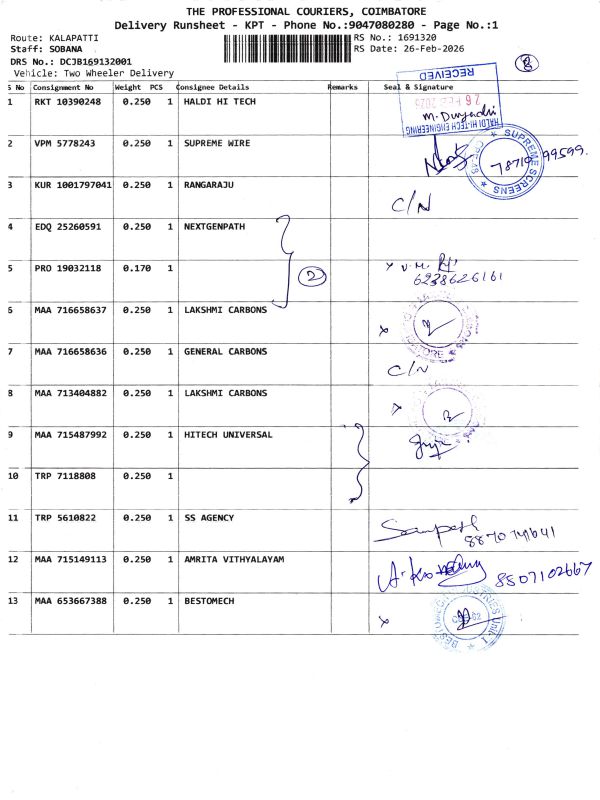 THE PROFESSIONAL COURIERS, COIMBATORE
Delivery Runsheet - KPT - Phone No.:9047080280 - Page No.:1
Route: KALAPATTI
Staff: SOBANA
DRS No.: DCJB169132001
Vehicle: Two Wheeler Delivery
RS No.: 1691320
RS Date: 26-Feb-2026
8
S No Consignment No Weight PCS Consignee Details Remarks Seal & Signature
1 RKT 10390248 0.250 1 HALDI HI TECH
RECEIVED
26 FEB 2026
HALDI HI-TECH ENGINEERING
2 VPM 5778243 0.250 1 SUPREME WIRE
SUPREME SCREENS
78710 99599
3 KUR 1001797041 0.250 1 RANGARAJU C/N
4 EDQ 25260591 0.250 1 NEXTGENPATH
2
5 PRO 19032118 0.170 1
6238626161
6 MAA 716658637 0.250 1 LAKSHMI CARBONS
7 MAA 716658636 0.250 1 GENERAL CARBONS C/N
8 MAA 713404882 0.250 1 LAKSHMI CARBONS
9 MAA 715487992 0.250 1 HITECH UNIVERSAL
10 TRP 7118808 0.250 1
11 TRP 5610822 0.250 1 SS AGENCY
Sampath
12 MAA 715149113 0.250 1 AMRITA VITHYALAYAM
8507102667
13 MAA 653667388 0.250 1 BESTOMECH